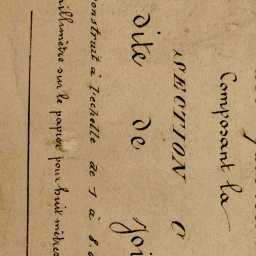 Composant la
SECTION
dite de
construit à l'échelle de 1 à 8.
millimètre sur le papier pour huit mètres